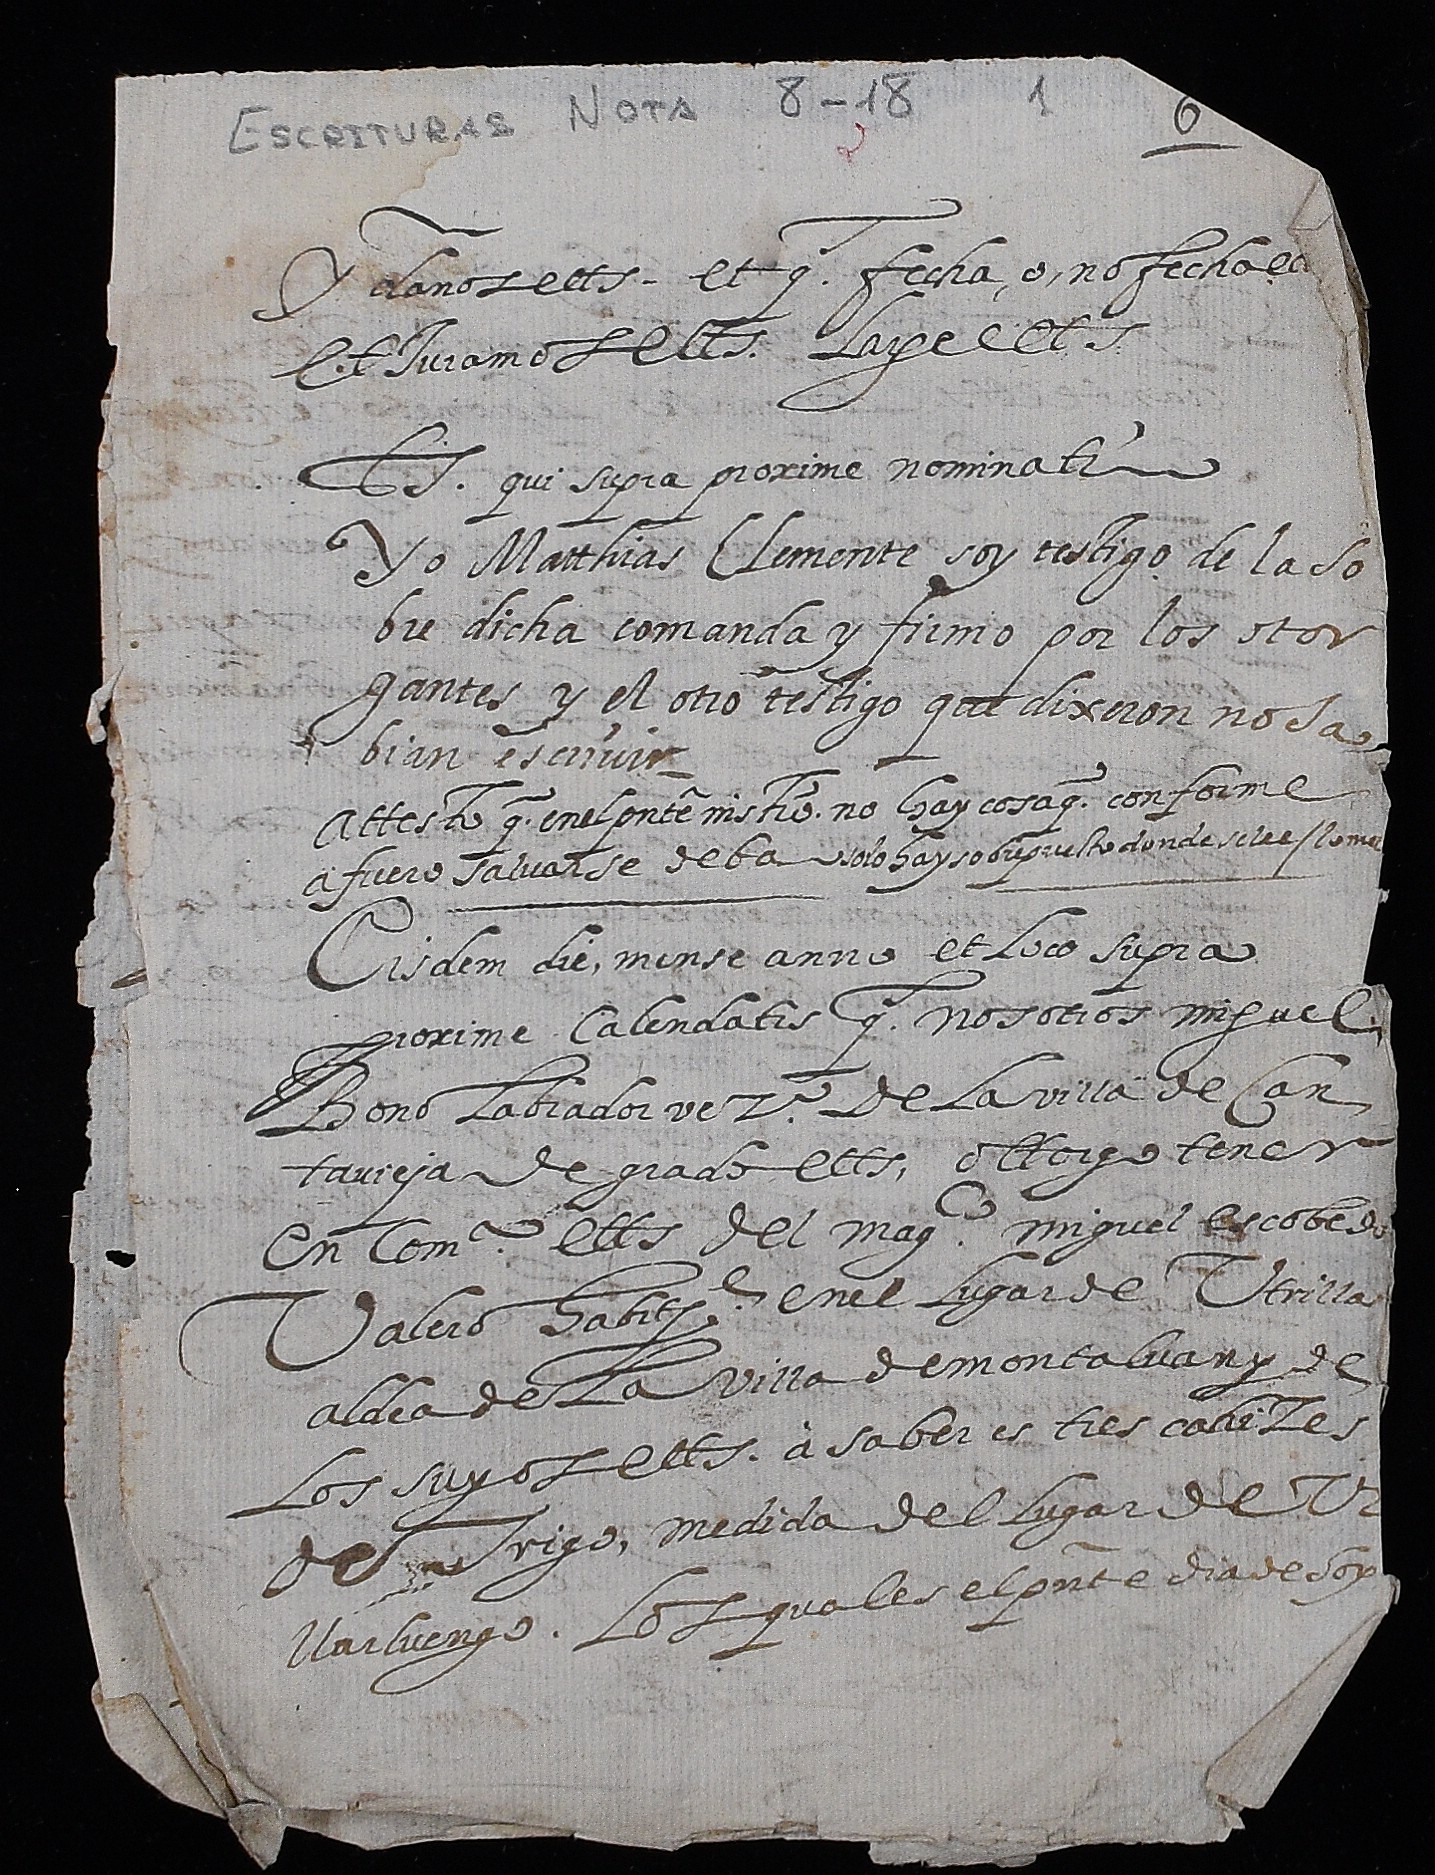 ESCRITURAS NOTA 8-18 1 6
2
Y daños etts. et q̃. fecha, o, no fecha
Et Juramos etts. Large etts
Ts. qui supra proxime nominati
Yo Matthias Clemente soy testigo de la so
bre dicha comanda y firmo por los otor
gantes y el otro testigo que dixeron no sa
bian escriuir
Attesto q̃. en el pnte instro. no hay cosa q̃. conforme
a fuero saluar se deba solo hay sobrepuesto donde se lee
Eisdem die, mense anno et loco supra
proxime Calendatis q̃. nosotros miguel
Bono Labrador vez.º de La villa de Can
tauieja de grado etts, ottorgo tener
en Com.ª etts del mag.co miguel escobedo
Valero habit.e en el Lugar de Utrilla
aldea de La Villa de montaluan y de
Los suyos etts. a saber es tres cahizes
de Trigo, medida del Lugar de Vi
llarluengo. Los quales el pnte dia de hoy